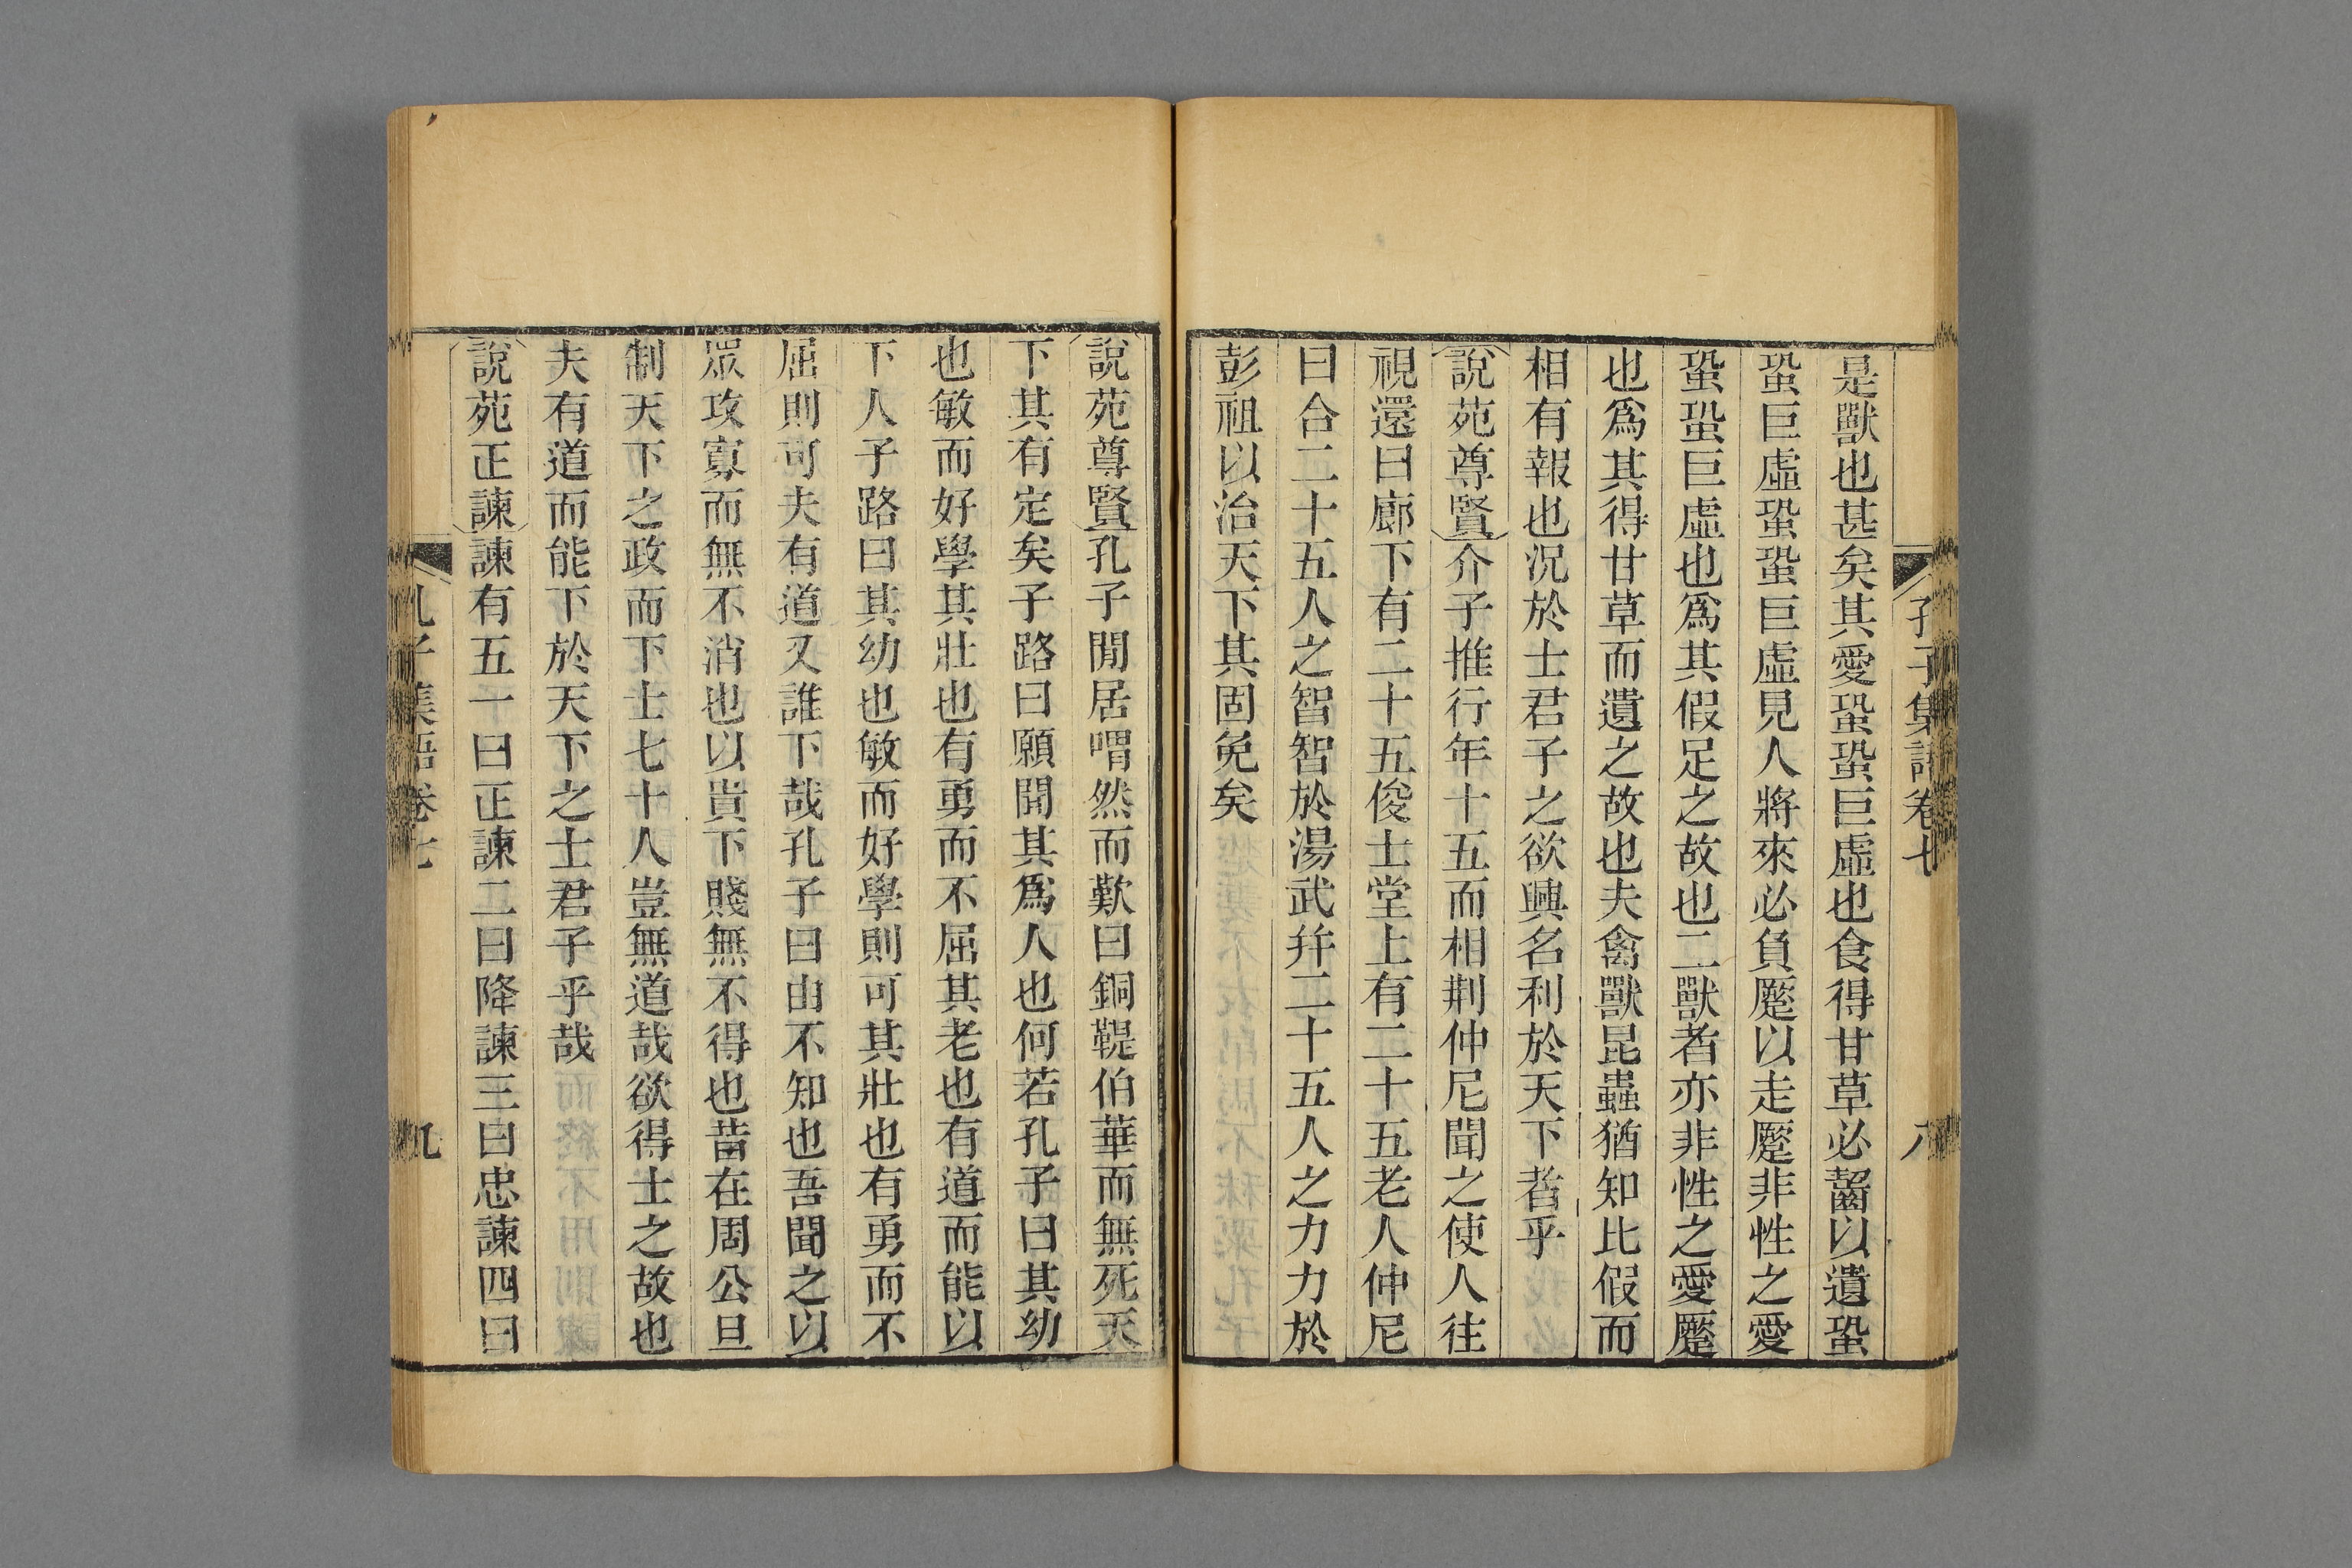 孔子集語卷七 八
是獸也甚矣其愛蛩蛩巨虛也食得甘草必齧以遺蛩
蛩巨虛蛩蛩巨虛見人將來必負蹷以走蹷非性之愛
蛩蛩巨虛也爲其假足之故也二獸者亦非性之愛蹷
也爲其得甘草而遺之故也夫禽獸昆蟲猶知比假而
相有報也況於士君子之欲興名利於天下者乎
說苑尊賢介子推行年十五而相荆仲尼聞之使人往
視還曰廊下有二十五俊士堂上有二十五老人仲尼
曰合二十五人之智智於湯武幷二十五人之力力於
彭祖以治天下其固免矣
說苑尊賢孔子閒居喟然而歎曰銅鞮伯華而無死天
下其有定矣子路曰願聞其爲人也何若孔子曰其幼
也敏而好學其壯也有勇而不屈其老也有道而能以
下人子路曰其幼也敏而好學則可其壯也有勇而不
屈則可夫有道又誰下哉孔子曰由不知也吾聞之以
眾攻寡而無不消也以貴下賤無不得也昔在周公旦
制天下之政而下士七十人豈無道哉欲得士之故也
夫有道而能下於天下之士君子乎哉
說苑正諫諫有五一曰正諫二曰降諫三曰忠諫四曰
孔子集語卷七 九